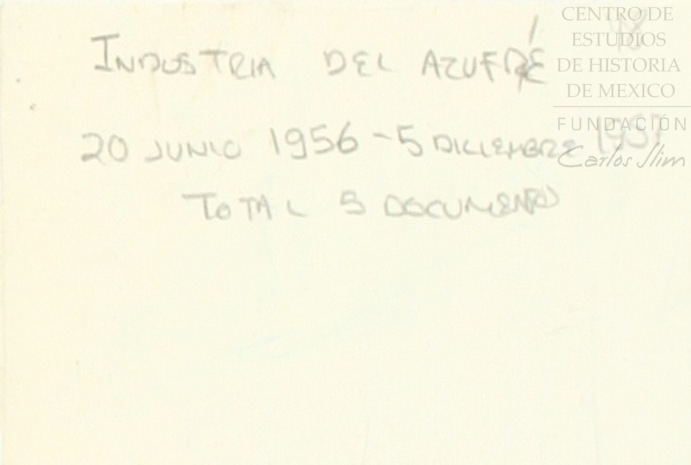 CENTRO DE
ESTUDIOS
DE HISTORIA
DE MEXICO
FUNDACIÓN
Carlos Slim
INDUSTRIA DEL AZUFRE
20 JUNIO 1956 - 5 DICIEMBRE 1957
TOTAL 5 DOCUMENTOS